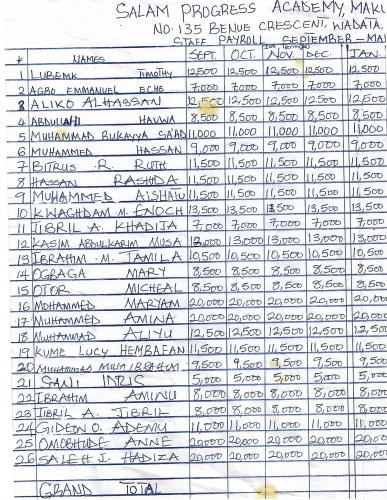 SALAM PROGRESS ACADEMY, MAKU
NO. 135 BENUE CRESCENT, WADATA.
STAFF PAYROLL SEPTEMBER - MA
# NAMES SEPT. OCT. NOV. DEC. JAN.
1 LUBEMK TIMOTHY 12,500 12,500 12,500 12,500 12,500
2 AGBO EMMANUEL ECHE 7,000 7,000 7,000 7,000 7,000
3 ALIKO ALHASSAN 12,500 12,500 12,500 12,500 12,500
4 ABDULLAHI HAUWA 8,500 8,500 8,500 8,500 8,500
5 MUHAMMAD RUKAYYA SA'AD 11,000 11,000 11,000 11,000 11,000
6 MUHAMMED HASSAN 9,000 9,000 9,000 9,000 9,000
7 BITRUS . R. RUTH 11,500 11,500 11,500 11,500 11,500
8 HASSAN RASHDA 11,500 11,500 11,500 11,500 11,500
9 MUHAMMED AISHATU 11,500 11,500 11,500 11,500 11,500
10 KWAGHDAM M. ENOCH 13,500 13,500 13,500 13,500 13,500
11 JIBRIL A. KHADIJA 7,000 7,000 7,000 7,000 7,000
12 KASIM ABDULKARIM MUSA 13,000 13,000 13,000 13,000 13,000
13 IBRAHIM . M. JAMILA 10,500 10,500 10,500 10,500 10,500
14 OGBAGA MARY 8,500 8,500 8,500 8,500 8,500
15 OTOR MICHEAL 8,500 8,500 8,500 8,500 8,500
16 MOHAMMED MARYAM 20,000 20,000 20,000 20,000 20,000
17 MUHAMMED AMINA 20,000 20,000 20,000 20,000 20,000
18 MUHAMMAD ALIYU 12,500 12,500 12,500 12,500 12,500
19 KUME LUCY HEMBAFAN 11,500 11,500 11,500 11,500 11,500
20 MUHAMMAD IBRAHIM 9,500 9,500 9,500 9,500 9,500
21 SANI IDRIS 5,000 5,000 5,000 5,000 5,000
22 IBRAHIM AMINU 8,000 8,000 8,000 8,000 8,000
23 JIBRIL A. JIBRIL 8,000 8,000 8,000 8,000 8,000
24 GIDEON O. ADEMU 11,000 11,000 11,000 11,000 11,000
25 OMOBHUDE ANNE 20,000 20,000 20,000 20,000 20,000
26 SALEH J. HADIZA 20,000 20,000 20,000 20,000 20,000
GRAND TOTAL